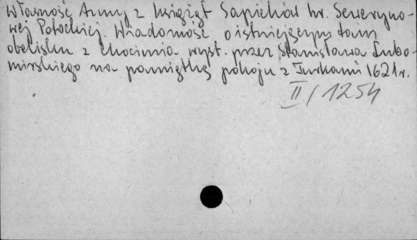 Własność Anny z Książąt Sapiehów hr. Seweryno-
wej Potockiej. Wiadomość o istniejącym tam
obelisku z Chocimia wyst. przez Stanisława Lubo-
mirskiego na pamiątkę pokoju z Turkami 1621 r.
II/1254